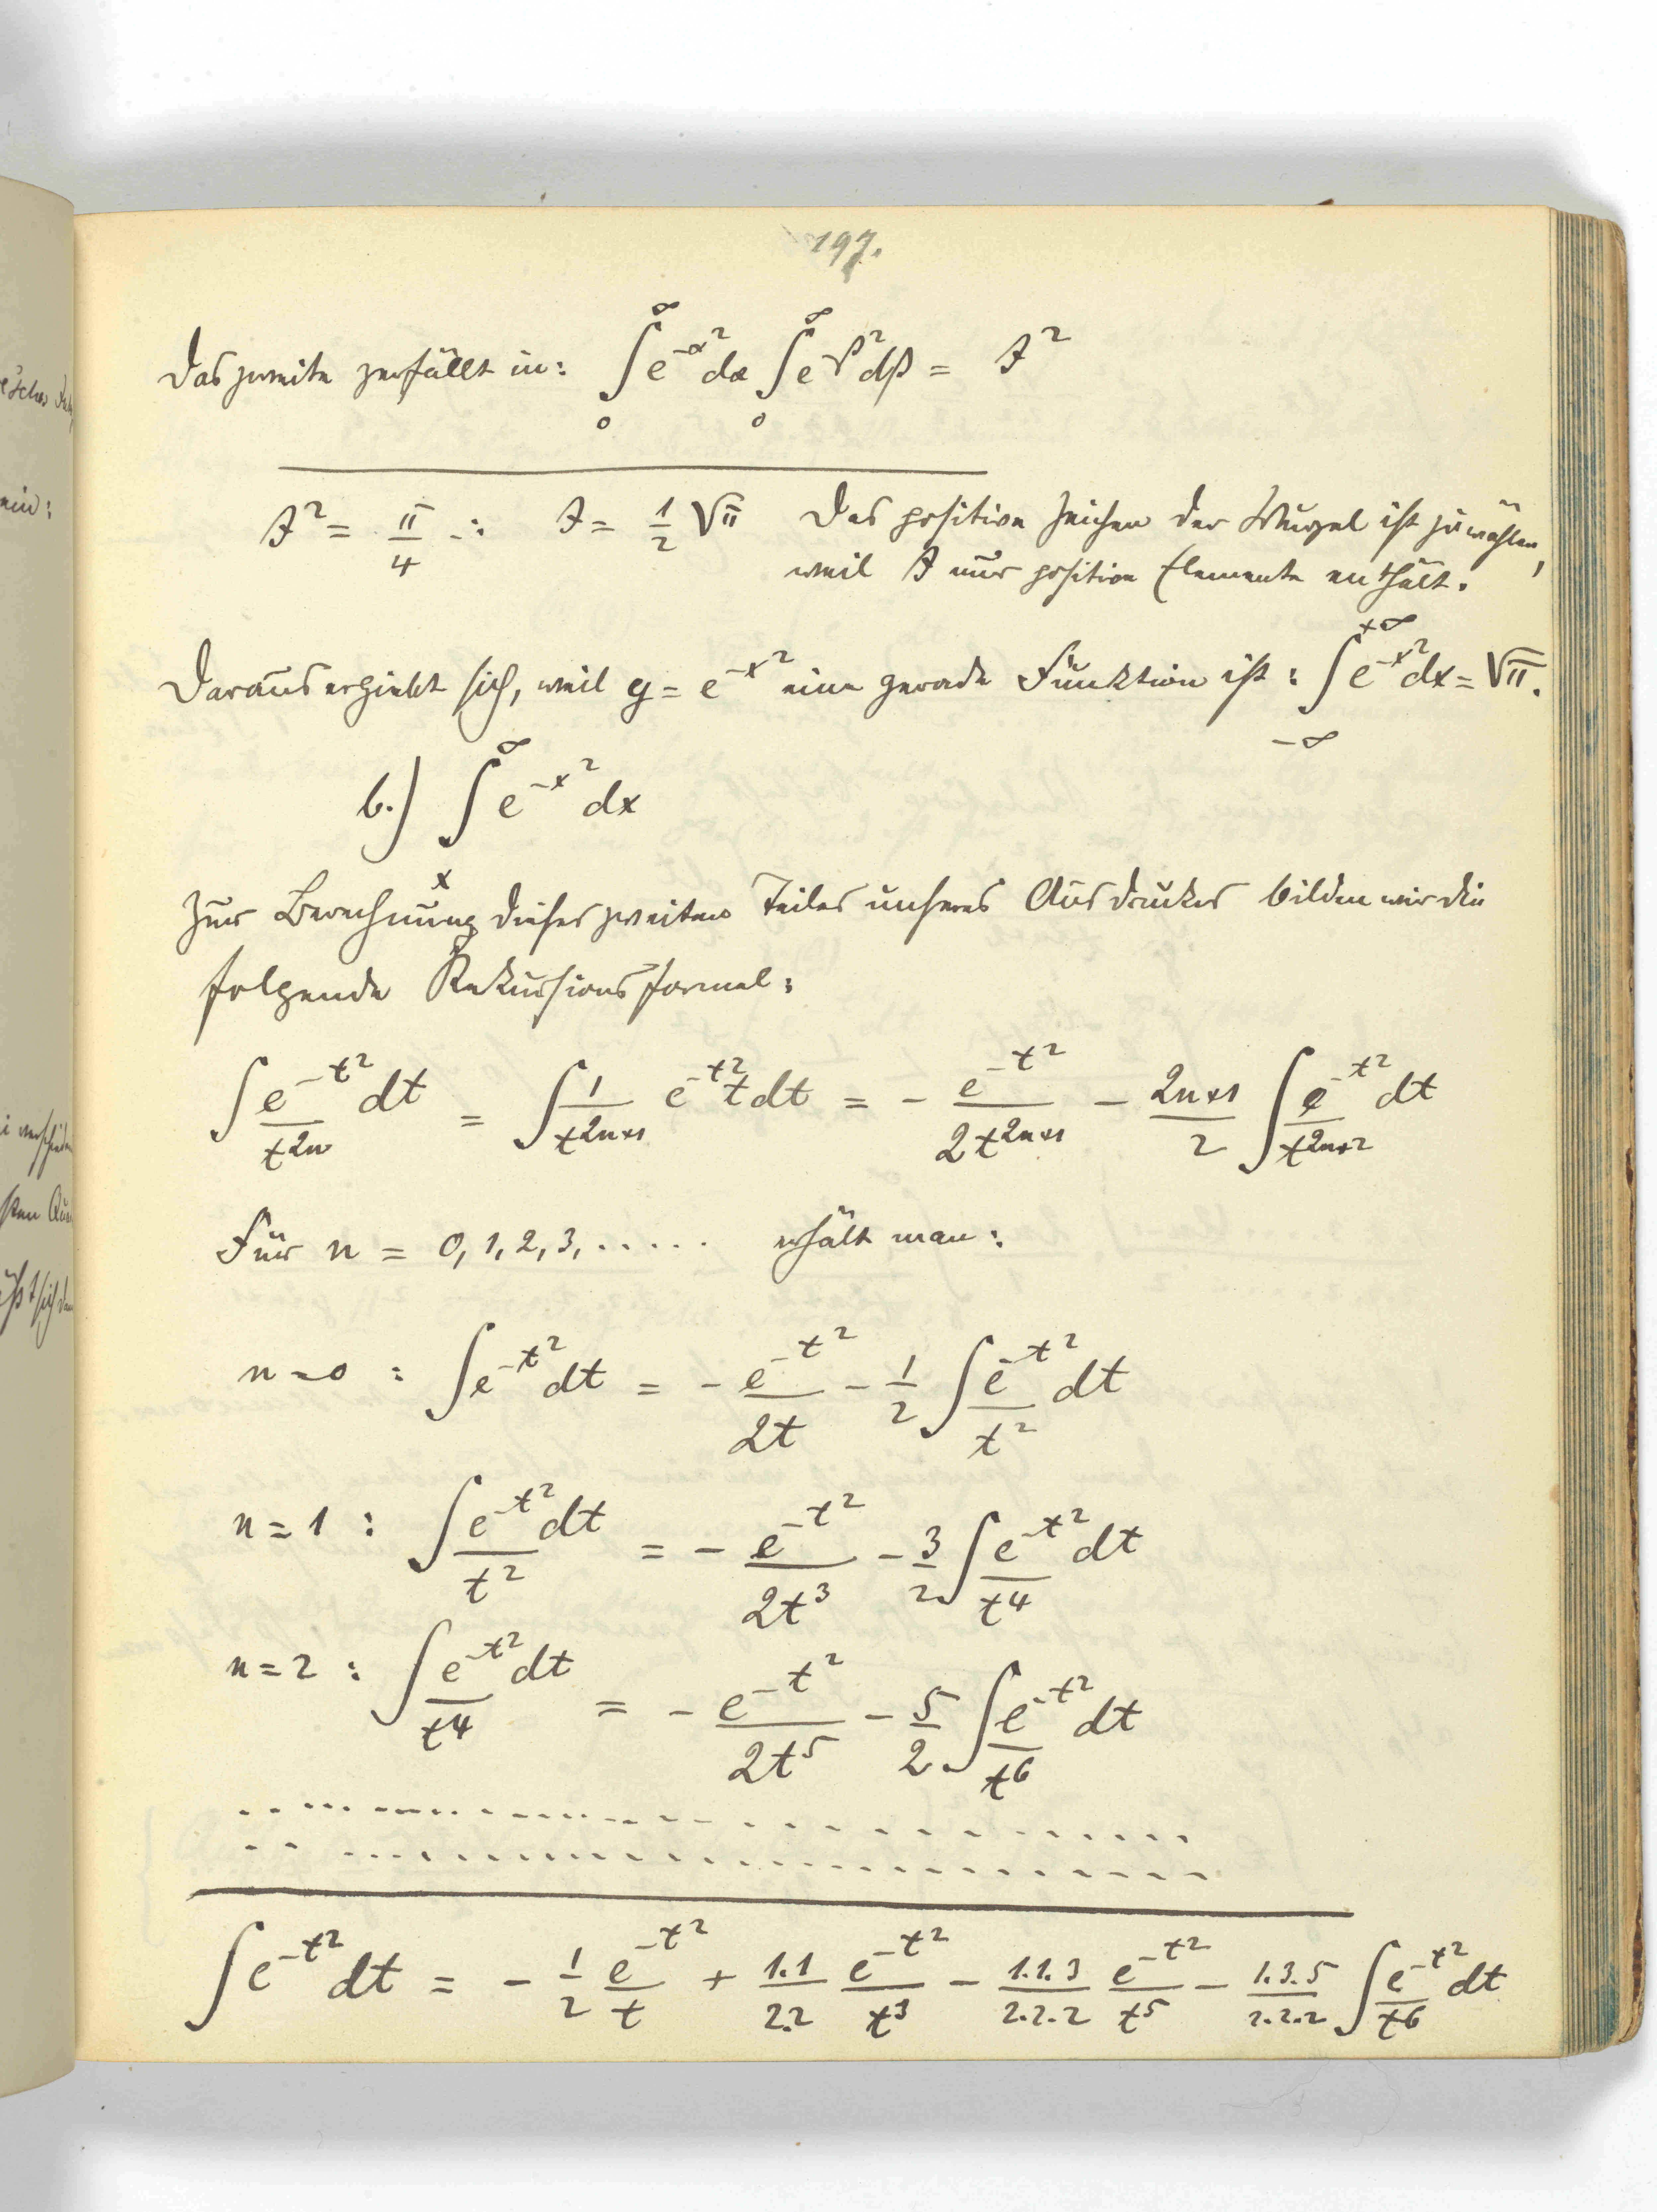 197.
Das zweite zerfällt in: ∫₀^∞ e^{-α²} dα ∫₀^∞ e^{-β²} dβ = J²
J² = π/4 ∴ J = 1/2 √π Das positive Zeichen der Wurzel ist zu wählen,
weil J nur positive Elemente enthält.
Daraus ergiebt sich, weil y = e^{-x²} eine gerade Funktion ist: ∫_{-∞}^{+∞} e^{-x²} dx = √π.
b.) ∫_x^∞ e^{-x²} dx
Zur Berechnung dieses zweiten Teiles unseres Ausdruckes bilden wir die
folgende Rekursionsformel:
∫ e^{-t²}/t^{2n} dt = ∫ 1/t^{2n+1} e^{-t²} t dt = - e^{-t²}/2t^{2n+1} - (2n+1)/2 ∫ e^{-t²}/t^{2n+2} dt
Für n = 0, 1, 2, 3, ..... erhält man:
n = 0 : ∫ e^{-t²} dt = - e^{-t²}/2t - 1/2 ∫ e^{-t²}/t² dt
n = 1 : ∫ e^{-t²}/t² dt = - e^{-t²}/2t³ - 3/2 ∫ e^{-t²}/t⁴ dt
n = 2 : ∫ e^{-t²}/t⁴ dt = - e^{-t²}/2t⁵ - 5/2 ∫ e^{-t²}/t⁶ dt
∫ e^{-t²} dt = - 1/2 e^{-t²}/t + 1.1/2.2 e^{-t²}/t³ - 1.1.3/2.2.2 e^{-t²}/t⁵ - 1.3.5/2.2.2 ∫ e^{-t²}/t⁶ dt